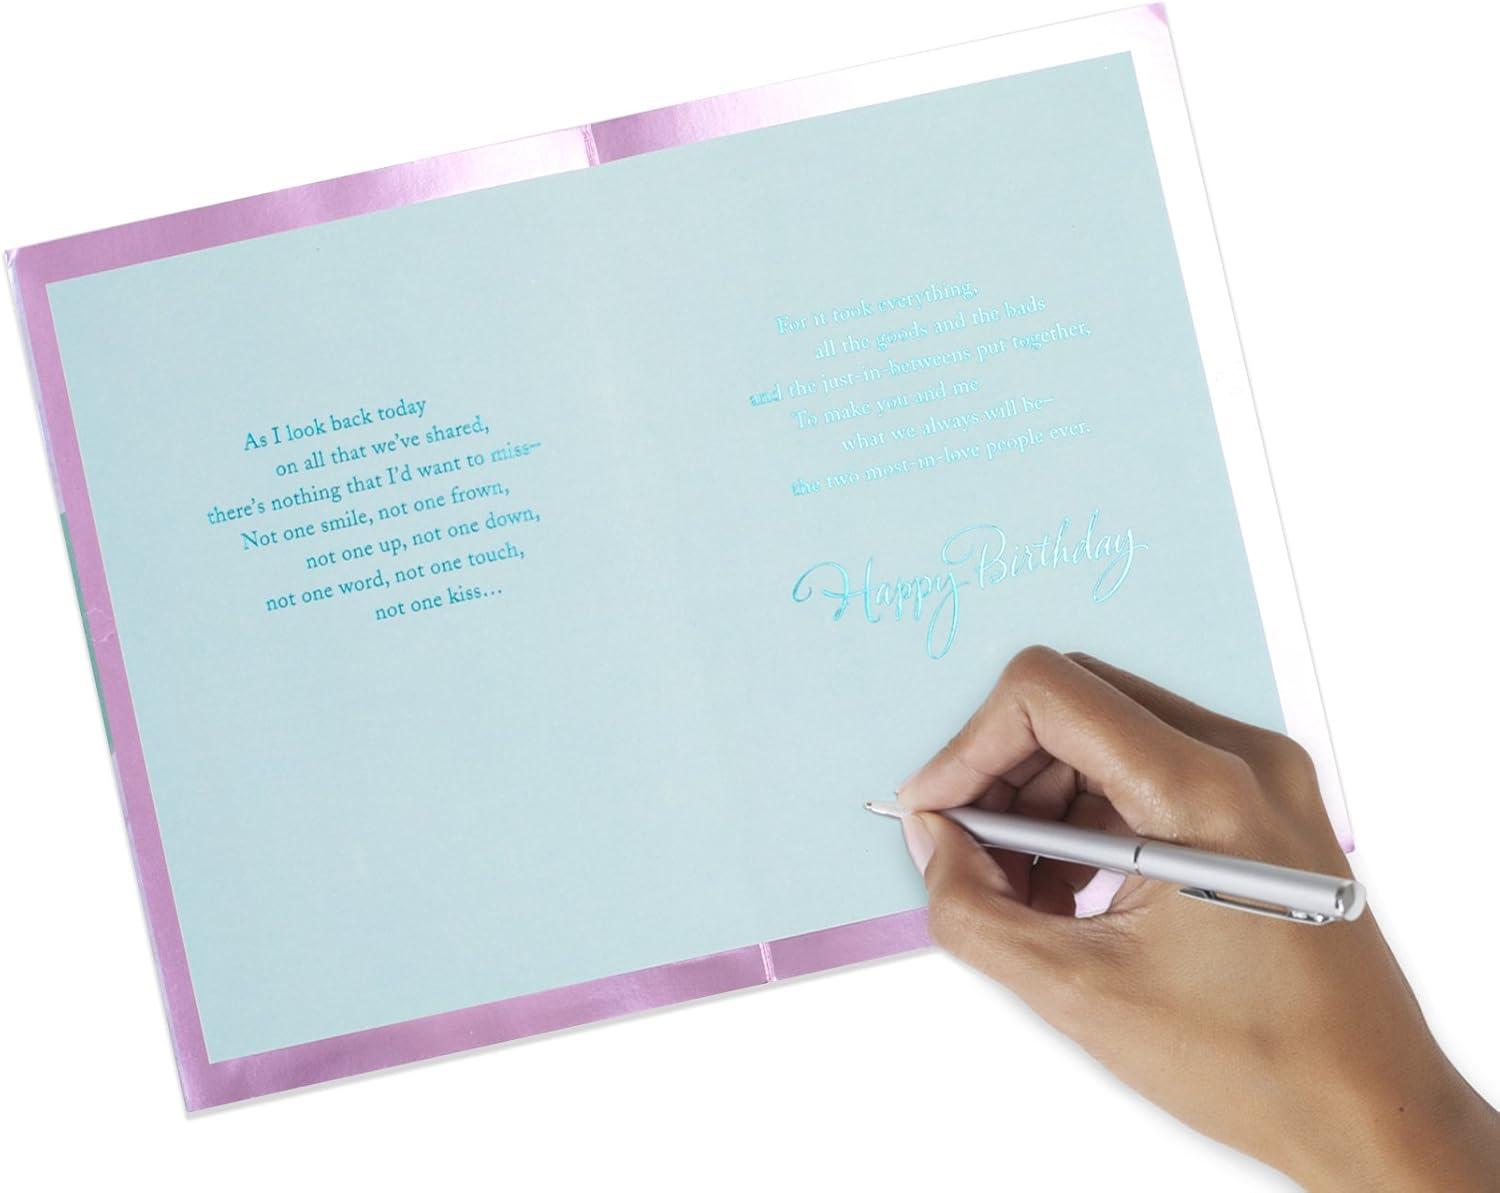 As I look back today
on all that we've shared,
there's nothing that I'd want to miss–
Not one smile, not one frown,
not one up, not one down,
not one word, not one touch,
not one kiss...
For it took everything,
all the goods and the bads
and the just-in-betweens put together,
To make you and me
what we always will be–
the two most-in-love people ever.
Happy Birthday